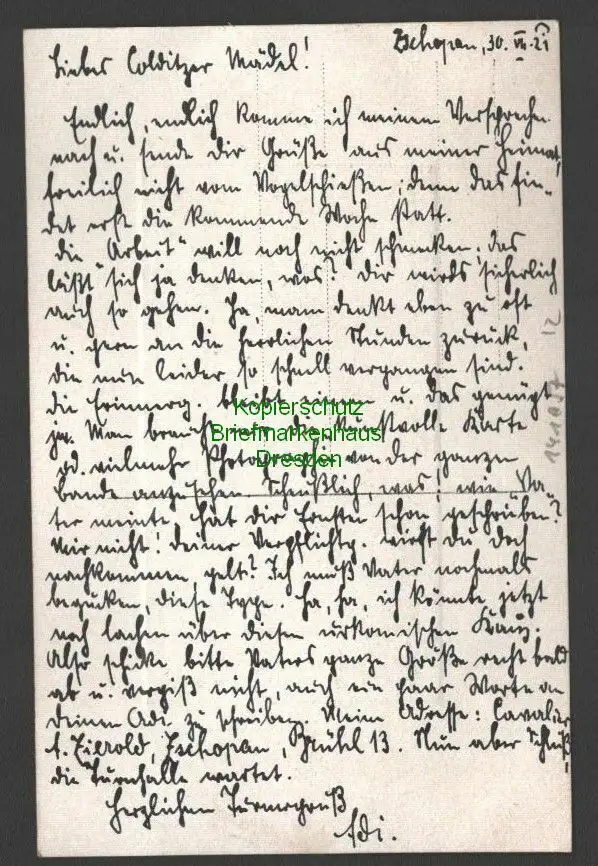 Zschopau, 30. VII. 21
Liebes Colditzer Mädel!
Endlich, endlich komme ich meinem Versprechen
nach u. sende dir Grüße aus meiner Heimat,
freilich nicht vom Vogelschießen; denn das fin-
det erst die kommende Woche statt.
Die "Arbeit" will noch nicht schmecken; das
läßt sich ja denken, was? Dir wirds sicherlich
auch so gehen. Ja, man denkt eben zu oft
u. gern an die herrlichen Stunden zurück,
die nun leider so schnell vergangen sind.
Die Erinnerg. bleibt einem u. das genügt
ja. Man braucht nur die kunstvolle Karte
od. vielmehr Photographie von der ganzen
Bande anzusehen. Scheußlich, was! wie "Va-
ter meinte. Hat dir Ernsten schon geschrieben?
Mir nicht! Deiner Verpflichtg. wirst du doch
nachkommen, gelt? Ich muß Vater nochmals
begucken, diese Type. Ha, ha, ich könnte jetzt
noch lachen über diesen urkomischen Kauz.
Also schicke bitte Vaters ganze Größe recht bald
ab u. vergiß nicht, auch ein paar Worte an
deinen Adi zu schreiben. Meine Adresse: Cavalier
A. Zierold, Zschopau, Brühl 13. Nun aber Schluß!
die Turnhalle wartet.
Herzlichen Turnergruß
Adi.
141057 12
Kopierschutz
Briefmarkenhaus
Dresden